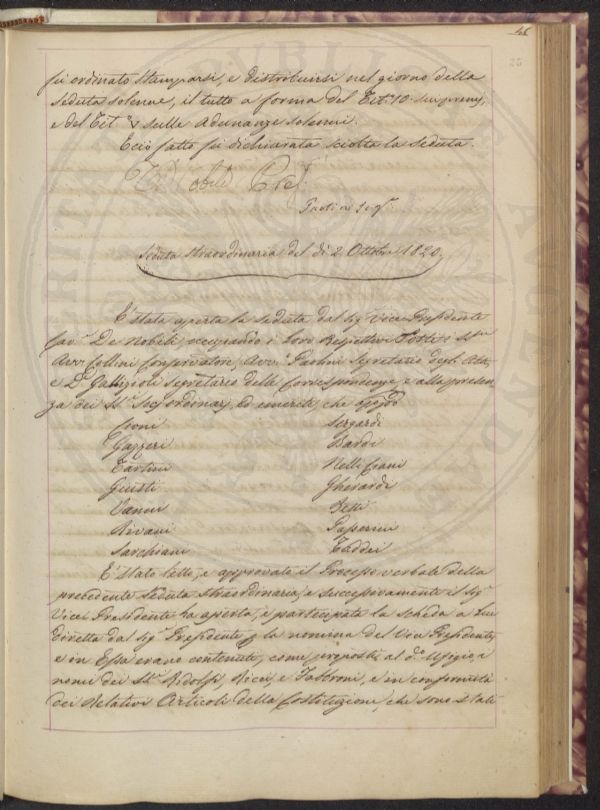 46
25
fu ordinato stamparsi, e distribuirsi nel giorno della
seduta solenne, il tutto a forma del Tit.° 10. sui premj,
e del Tit.° sulle Adunanze solenni.
E ciò fatto fu dichiarata sciolta la seduta.
Paolini Seg.
Seduta straordinaria del dì 2. Ottobre 1820.
È stata aperta la seduta dal Sig. Vice Presidente
Cav. De Nobili, occupando i loro Respettivi Posti i SS.ri
Avv. Collini Conservatore, Avv. Paolini Segretario degli Atti,
e D. Gallizioli Segretario delle Corrispondenze, e alla presen,
za dei SS. Socj ordinarj, ed emeriti, che appo
Cioni
Sergardi
Gazzeri
Bardi
Tartini
Nelli Ciani
Giusti
Gherardi
Vanni
Betti
Rivani
Passerini
Sarchiani
Taddei
È stato letto, e approvato il Processo verbale della
precedente seduta straordinaria, e successivamente il Sig.
Vice Presidente ha aperta, e partecipata la scheda a Lui
diretta dal Sig. Presidente p la nomina del Vice Presidente,
e in Essa erano contenuti, come proposti al d.° Ufizio, i
nomi dei SS. Ridolfi, Ricci, e Fabbroni, e in conformità
dei Relativi Articoli della Costituzione, che sono stati